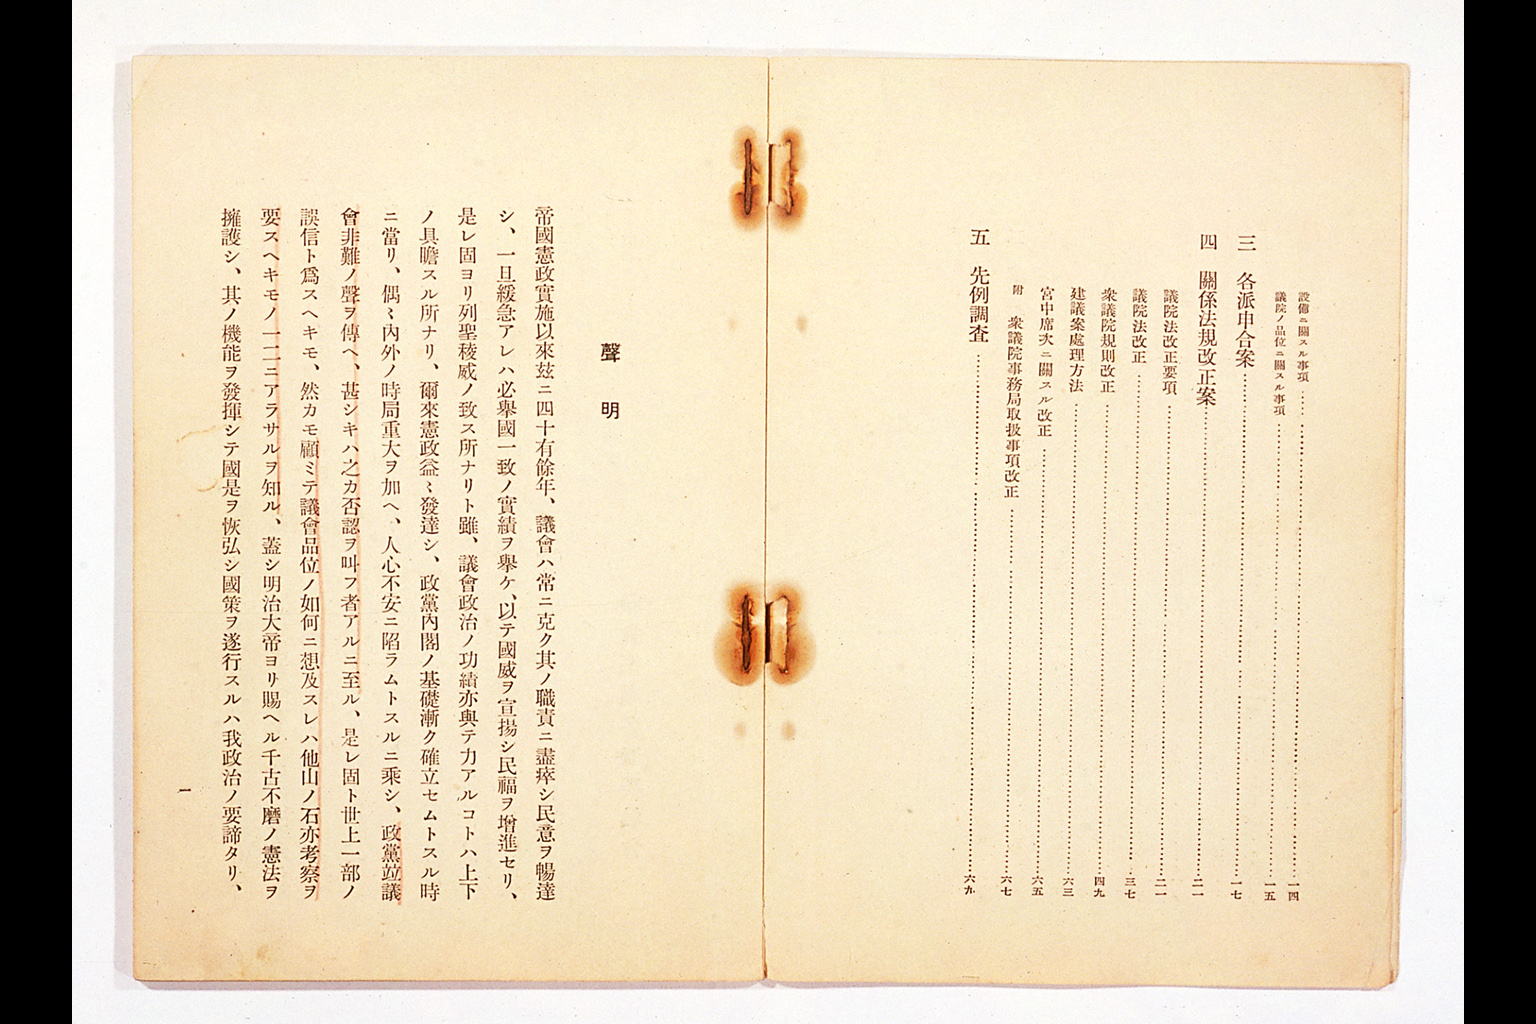 設備ニ關スル事項……一四
議院ノ品位ニ關スル事項……一五
三　各派申合案……一七
四　關係法規改正案……二一
議院法改正要項……二一
議院法改正……三七
衆議院規則改正……四九
建議案處理方法……六三
宮中席次ニ關スル改正……六五
附　衆議院事務局取扱事項改正……六七
五　先例調査……六九
聲明
帝國憲政實施以來玆ニ四十有餘年、議會ハ常ニ克ク其ノ職責ニ盡瘁シ民意ヲ暢達
シ、一旦緩急アレハ必擧國一致ノ實績ヲ擧ケ、以テ國威ヲ宣揚シ民福ヲ增進セリ、
是レ固ヨリ列聖稜威ノ致ス所ナリト雖、議會政治ノ功績亦與テ力アルコトハ上下
ノ具瞻スル所ナリ、爾來憲政益〻發達シ、政黨內閣ノ基礎漸ク確立セムトスル時
ニ當リ、偶〻內外ノ時局重大ヲ加ヘ、人心不安ニ陷ラムトスルニ乘シ、政黨竝議
會非難ノ聲ヲ傳ヘ、甚シキハ之カ否認ヲ叫フ者アルニ至ル、是レ固ト世上一部ノ
誤信ト爲スヘキモ、然カモ顧ミテ議會品位ノ如何ニ想及スレハ他山ノ石亦考察ヲ
要スヘキモノ一二ニアラサルヲ知ル、蓋シ明治大帝ヨリ賜ヘル千古不磨ノ憲法ヲ
擁護シ、其ノ機能ヲ發揮シテ國是ヲ恢弘シ國策ヲ遂行スルハ我政治ノ要諦タリ、
一